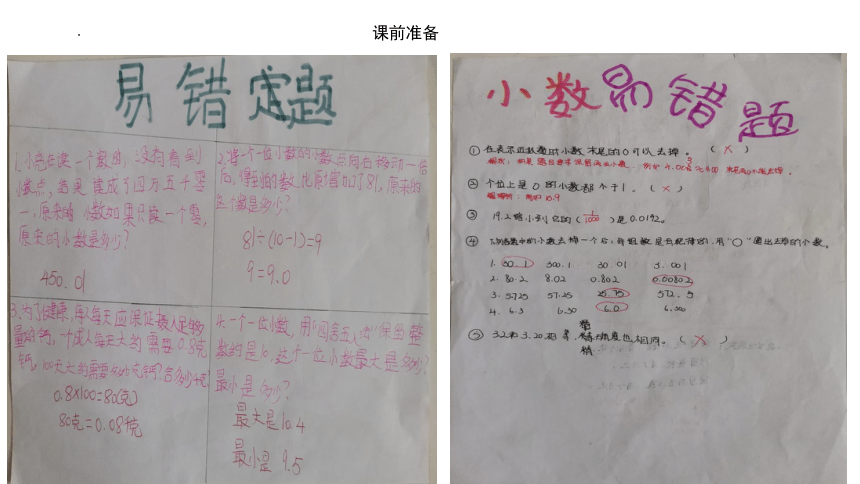 课前准备
易错定题
1.小亮在读一个数时,没有看到
小数点,结果读成了四万五千零
一,原来的小数如果只读一个零,
原来的小数是多少?
450.01
2.将一个一位小数的小数点向右移动一位
后,得到的数比原来增加了81,原来的
这个数是多少?
81÷(10-1)=9
9=9.0
3.为了健康,每人每天应保证摄入足够
量的钙,一个成人每天大约需要0.8克
钙,100天大约需要多少克钙?合多少千克?
0.8×100=80(克)
80克=0.08千克
4.一个一位小数,用"四舍五入"法保留整
数约是10,这个一位小数最大是多少?
最小是多少?
最大是10.4
最小是 9.5
小数易错题
① 在表示近似数时小数末尾的0可以去掉。 ( × )
② 个位上是 0 的小数都小于1。 ( × )
③ 19.2缩小到它的( 1/1000 )是0.0192。
1. 30.1 300.1 30.01 3.001
2. 80.2 8.02 0.802 0.00802
3. 5725 57.25 25.75 572.5
4. 6.3 6.30 6.0 6.300
⑤ 3.2和3.20相等,精确度也相同。( × )